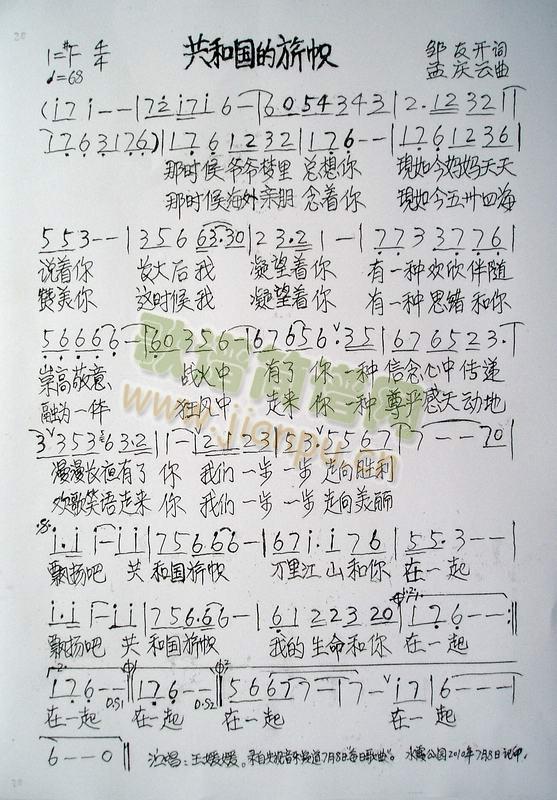 共和国的旂帜
1=#F 4/4
♩=68
邹友开词
孟庆云曲
(i7 i--|7 2 i 7 i 6-|6 0 5 4 3 4 3|2.12 3 2 1|
1 7 6 3 1 7 6)|1 7 6 1 2 3 2|1 7 6--|1 7 6 1 2 3 6|
那时候爷爷梦里 总想你 現如今妈妈天天
那时候海外亲朋 念着你 現如今五卅四海
5 5 3--|3 5 6 6 3.3 0|2 3.2 1-|7 7 3 3 7 7 6|
说着你 长大后我 凝望着你 有一种欢欣伴随
赞美你 这时候我 凝望着你 有一种思绪和你
5 6 6 6 6-|6 0 3 5 6-|6 7 6 5 6.3 5|6 7 6 5 2 3.
崇高敬意、 战火中 有了 你一种信念心中传递
融为一体 狂风中 走来 你一种尊乎感天动地
3 3 5 3 6 3 2|1-2 1 2 3|5 3 5 5 6 7|7--7 0|
漫漫长夜有了 你 我们一步一步走向胜利
欢歌笑语走来 你 我们一步一步走向美丽
i.i i-i i|7 5 6.6 6-|6 7 i.i 7 6|5 5.3--|
飘扬吧 共和国旂帜 万里江山和你 在一起
i.i i-i i|7 5 6.6 6-|6 1 2 2 3 2 0|1 7 6--:||
飘扬吧 共和国旂帜 我的生命和你 在一起
1 7 6--D.S1|1 7 6--D.S2|5 6 6 7 7-|7-i 7|6---|
在一起 在一起 在一起 在一起
6--0||
演唱:王媛媛。录自央视音乐频道7月8日每日歌曲。 水霞公园2010年7月8日记印.
歌谱简谱网
www.jianpu.cn